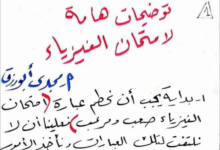 توضيحات هامة
لامتحان الفيزياء
م. مجدى أبورزق
١- بداية يجب أن نحطم عبارة (امتحان
الفيزياء صعب ومرعب) فعلينا أن لا
نلتفت لتلك العبارات، نأخذ الأمور